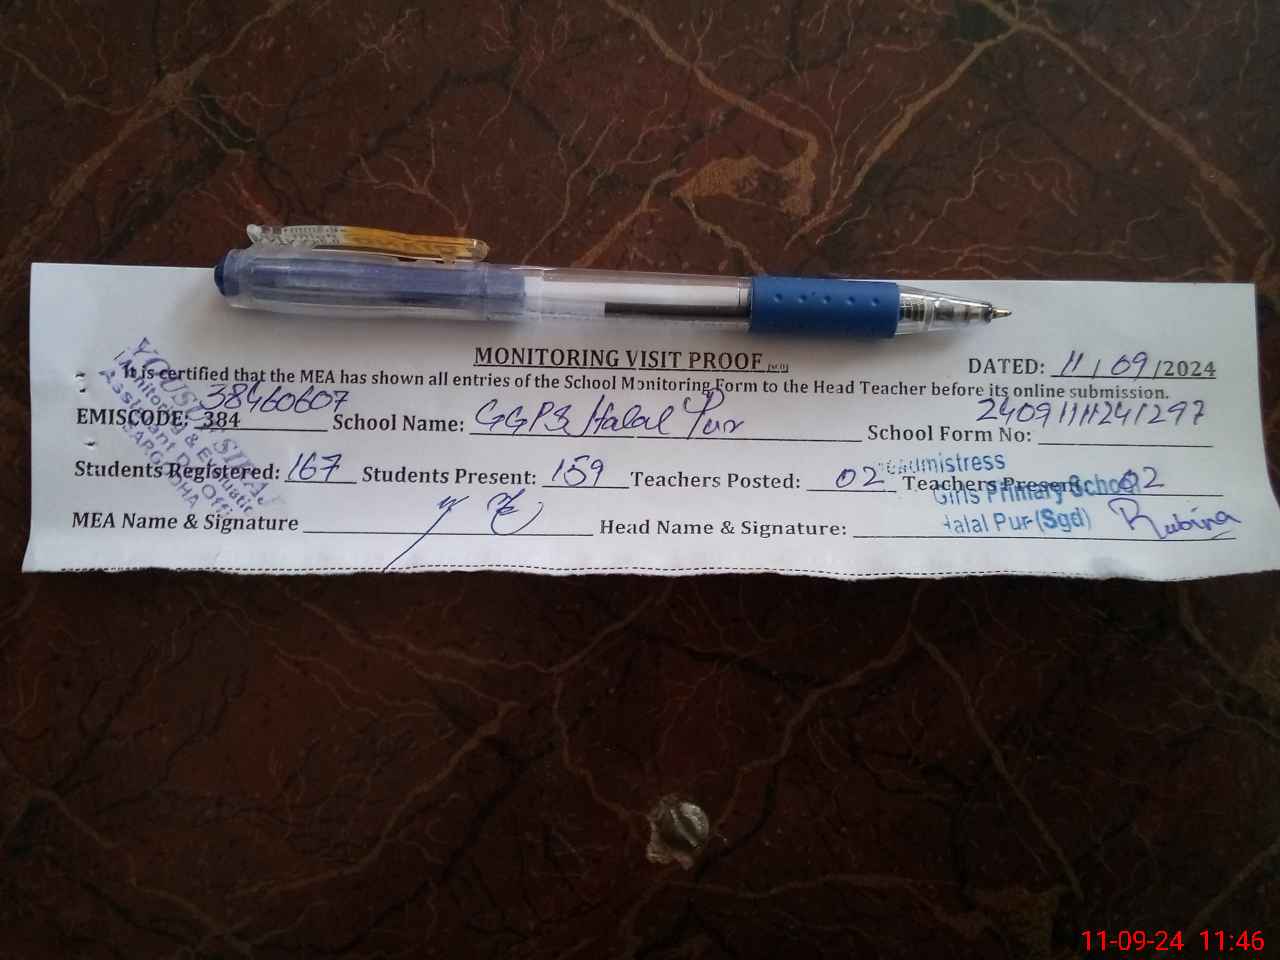 MONITORING VISIT PROOF
DATED: 11/09/2024
It is certified that the MEA has shown all entries of the School Monitoring Form to the Head Teacher before its online submission.
38460607
EMISCODE: 384 School Name: GGPS Halal Pur
School Form No: 24091111241297
Students Registered: 167 Students Present: 159 Teachers Posted: 02 Teachers Present 02
MEA Name & Signature
Head Name & Signature: Rubina
Monitoring & Evaluation
Assistant
Girls Primary School
Halal Pur (Sgd)
11-09-24 11:46